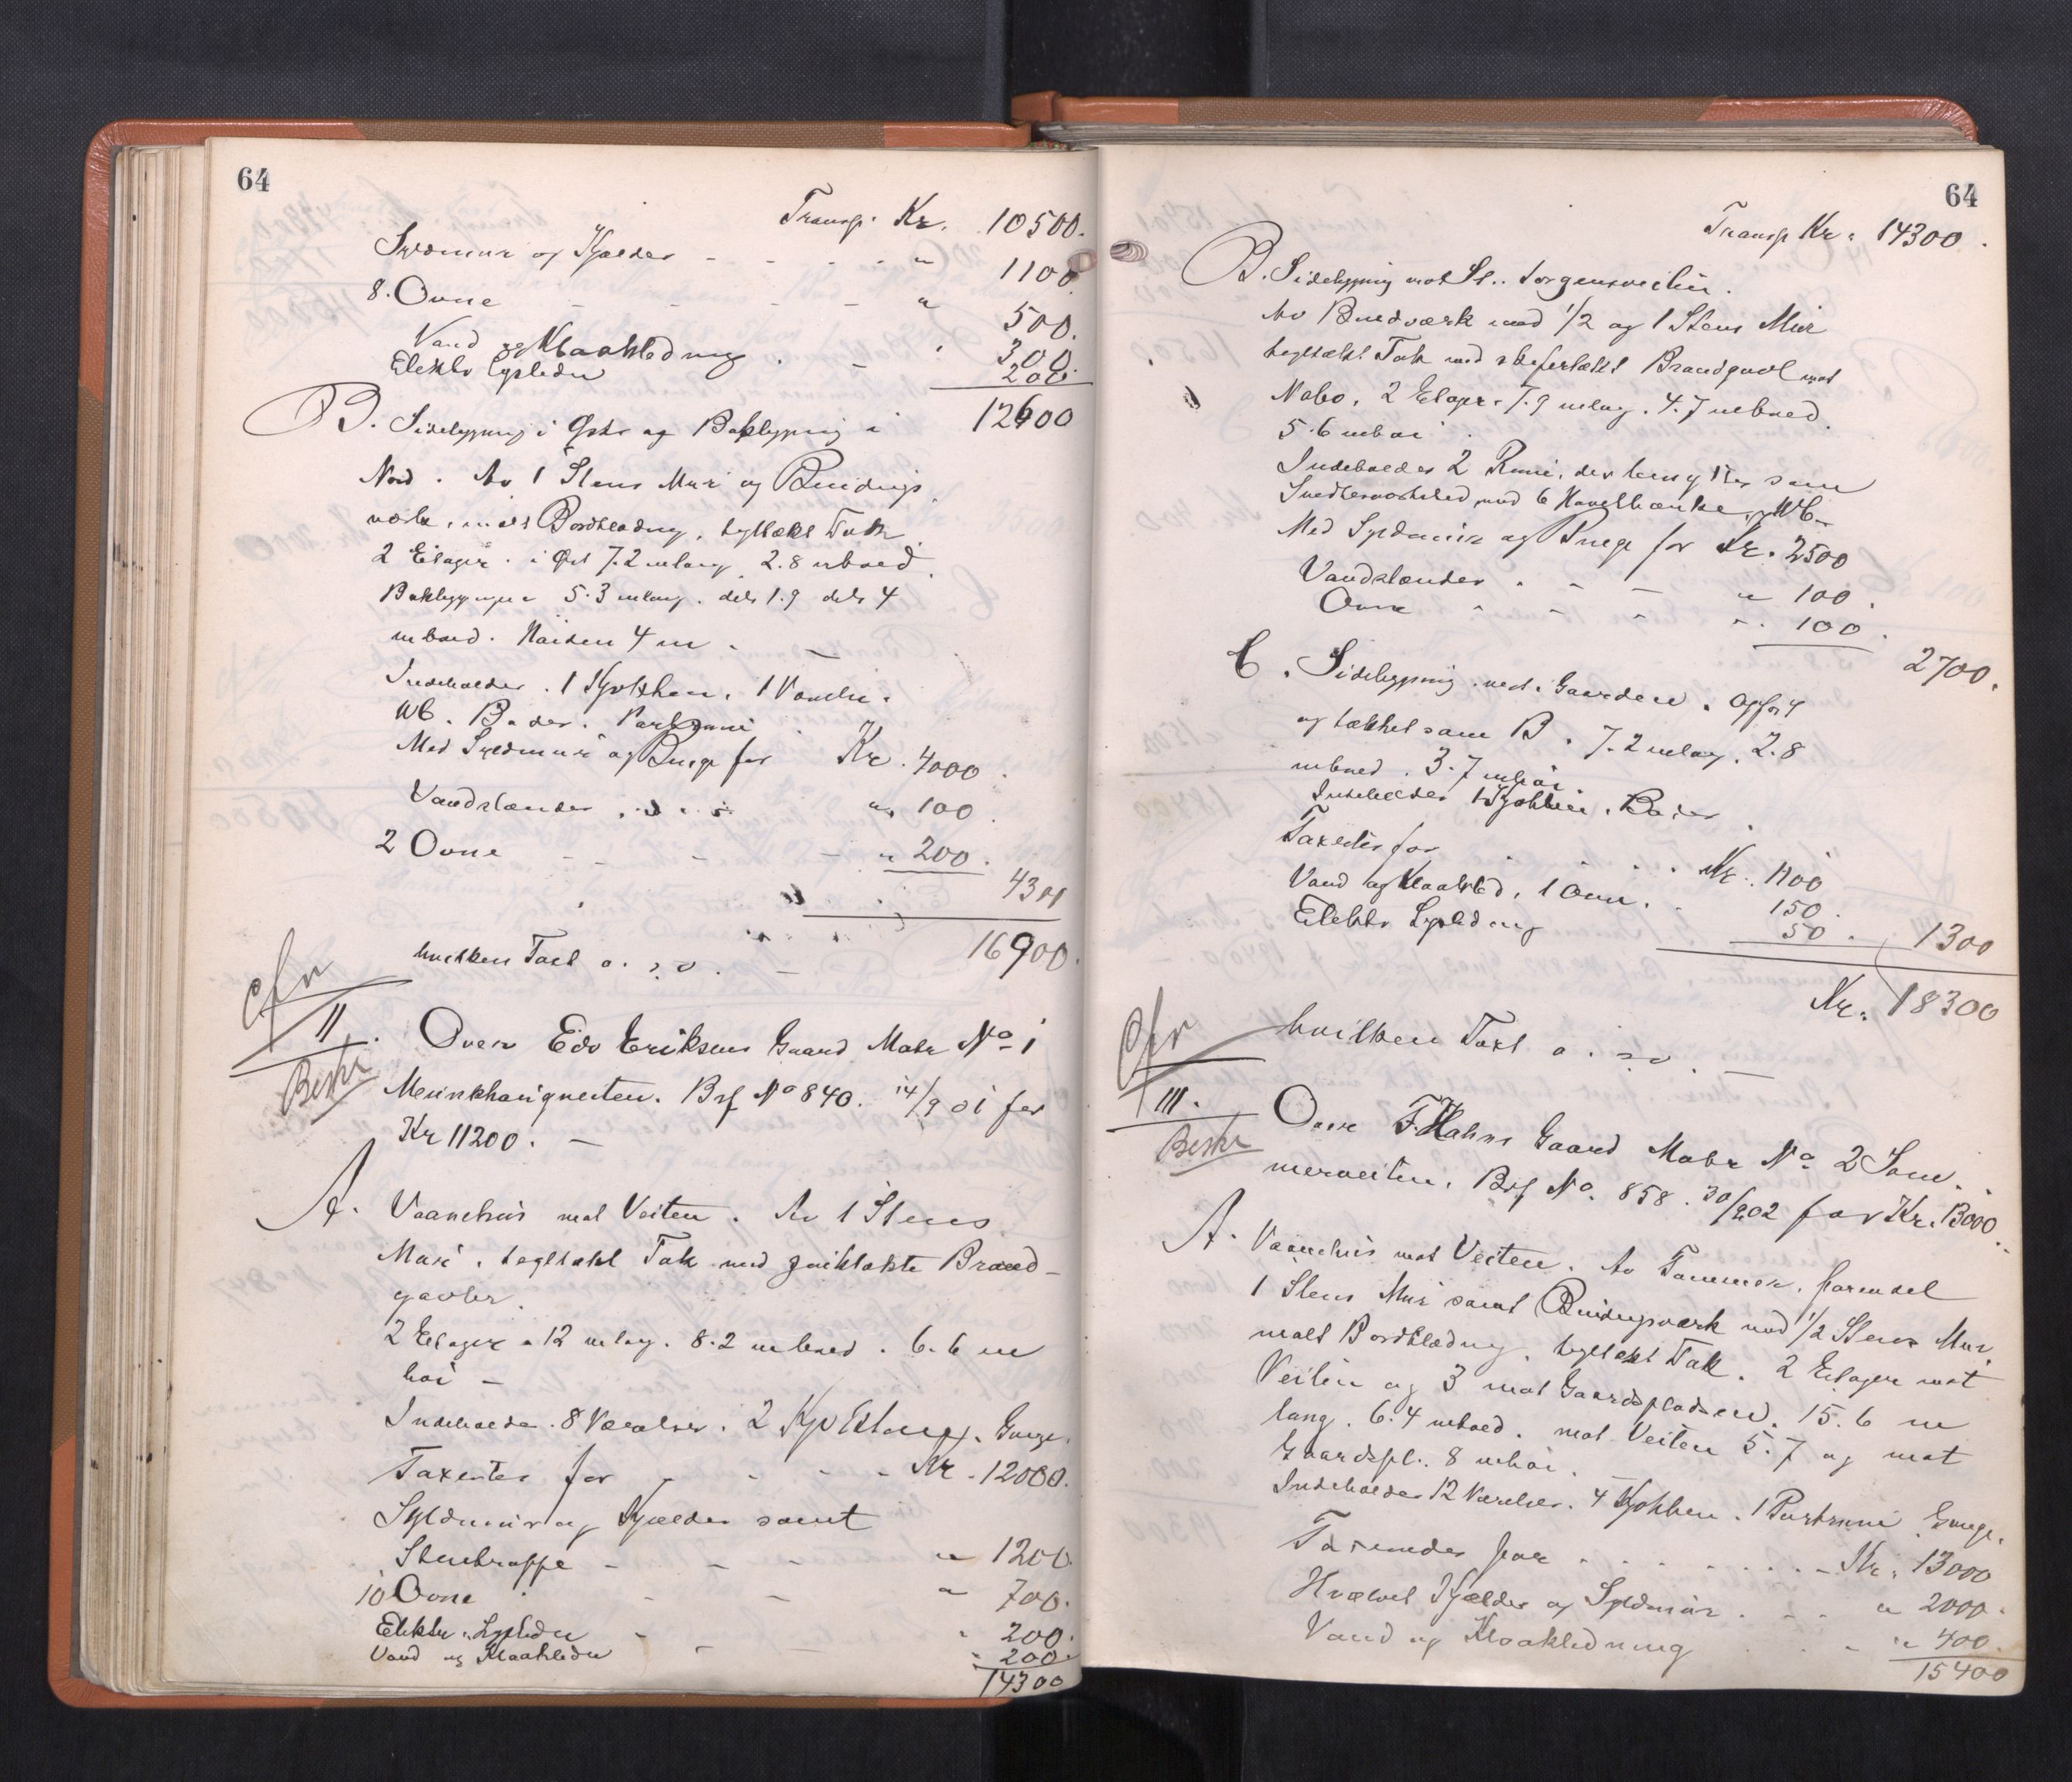 64
Transp. Kr. 10500.
Syldmur og Kjælder - - - - " 1100
8. Ovne - - - - " 500.
Vand og Kloakledning . - " 300.
Elektr Lysledn 200.
B. Sidebygning i Øst og Bakbygning i 12600
Nord. Av 1 Stens Mur og Bindings-
værk, malt Bordklædng, tegltækt Tak
2 Etager. i Øst 7.2 m lang 2.8 m bred.
Bakbygningen 5.3 m lang. dels 1.9 dels 4
m bred. Høiden 4 m. -
Indeholder. 1 Kjøkken. 1 Værelse.
WC. Boder. Portrum.
Med Syldmur og Gange for Kr. 4000.
Vandklæder " 100.
2 Ovne - - - - " 200.
4300
16900.
hvilken Taxt o. s. v. -
Cfr
II. Over Edv Eriksens Gaard Matr No 1
Beskr
Munkhaugveiten. Brf No 840. 14/9 01 for
Kr 11200. -
A. Vaanehus mot Veiten. Av 1 Stens
Mur. tegltækt Tak med zinktækte Brand-
gavler.
2 Etager. 12 m lang. 8.2 m bred. 6.6 m
høi -
Indeholder. 8 Værelser. 2 Kjøkken. Gange.
Taxertes for - - - - Kr. 12000.
Syldmur og Kjælder samt
Stentrappe - - - " 1200.
10 Ovne - - " 700.
Elektr. Lysledn - " 200.
Vand og Kloakledn - - " 200.
14300
64
Transp Kr. 14300.
B. Sidebygning mot St. Jørgensveiten.
Av Bindværk med 1/2 og 1 Stens Mur
tegltækt Tak med skifertækt Brandgavl mot
Nabo. 2 Etager. 7.9 m lang. 4.7 m bred.
5.6 m høi.
Indeholder 2 Rum, der benyttes som
Snedkerverksted med 6 Høvelbænke, WC-
Med Syldmur og Gange for Kr. 2500
Vandklæder . - - " 100.
Ovne - - - " 100.
2700.
C. Sidebygning ved Gaarden. Opført
og tækket som B. 7.2 m lang. 2.8
m bred. 3.7 m høi
Indeholder 1 Kjøkken, Boder.
Taxertes for . . . . Kr. 1100
Vand og Kloakled. 1 Ovn. . 150.
Elektr Lysledning 50. 1300
Kr. 18300
hvilken Taxt o. s. v. -
Cfr
III. Over F. Hahns Gaard Matr No 2 Som-
Beskr
merveiten. Brf No. 858. 30/9 02 for Kr. 13000.
A. Vaanehus mot Veiten. Av Tømmer, forendel
1 Stens Mur samt Bindingsværk med 1/2 Stens Mur,
malt Bordklædng, tegltækt Tak. 2 Etager mot
Veiten og 3 mot Gaardspladsen. 15.6 m
lang. 6.4 m bred. mot Veiten 5.7 og mot
Gaardspl. 8 m høi.
Indeholder 12 Værelser. 4 Kjøkken. 1 Portrum. Gange.
Taxertes for . . . . . Kr. 13000
Hvælvet Kjælder og Syldmur . . . " 2000.
Vand og Kloakledning . . " 400.
15400